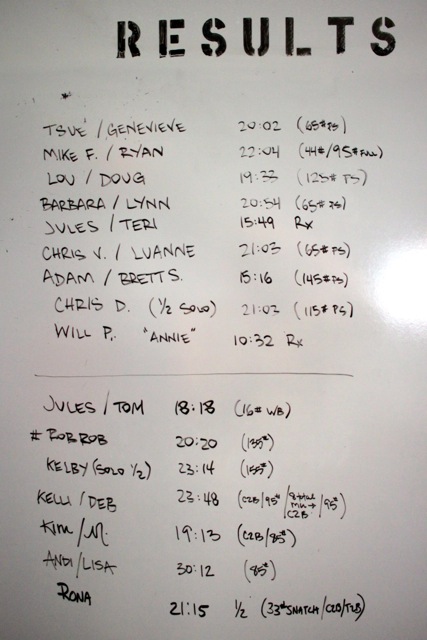 RESULTS
TSUE / GENEVIEVE 20:02 (65# PS)
MIKE F. / RYAN 22:04 (44#/95# FULL)
LOU / DOUG 19:33 (125# PS)
BARBARA / LYNN 20:54 (65# PS)
JULES / TERI 15:49 Rx
CHRIS V. / LUANNE 21:03 (65# PS)
ADAM / BRETT S. 15:16 (145# PS)
CHRIS D. (1/2 SOLO) 21:02 (115# PS)
WILL P. "ANNIE" 10:32 Rx
JULES / TOM 18:18 (16# WB)
# ROB ROB 20:20 (135#)
KELBY (SOLO 1/2) 23:14 (155#)
KELLI / DEB 23:48 (C2B/95#/8 total MU → C2B/95#)
Kim / M. 19:13 (C2B/85#)
ANDI/LISA 30:12 (85#)
RONA
21:15 1/2 (33# SNATCH/C2B/T2B)